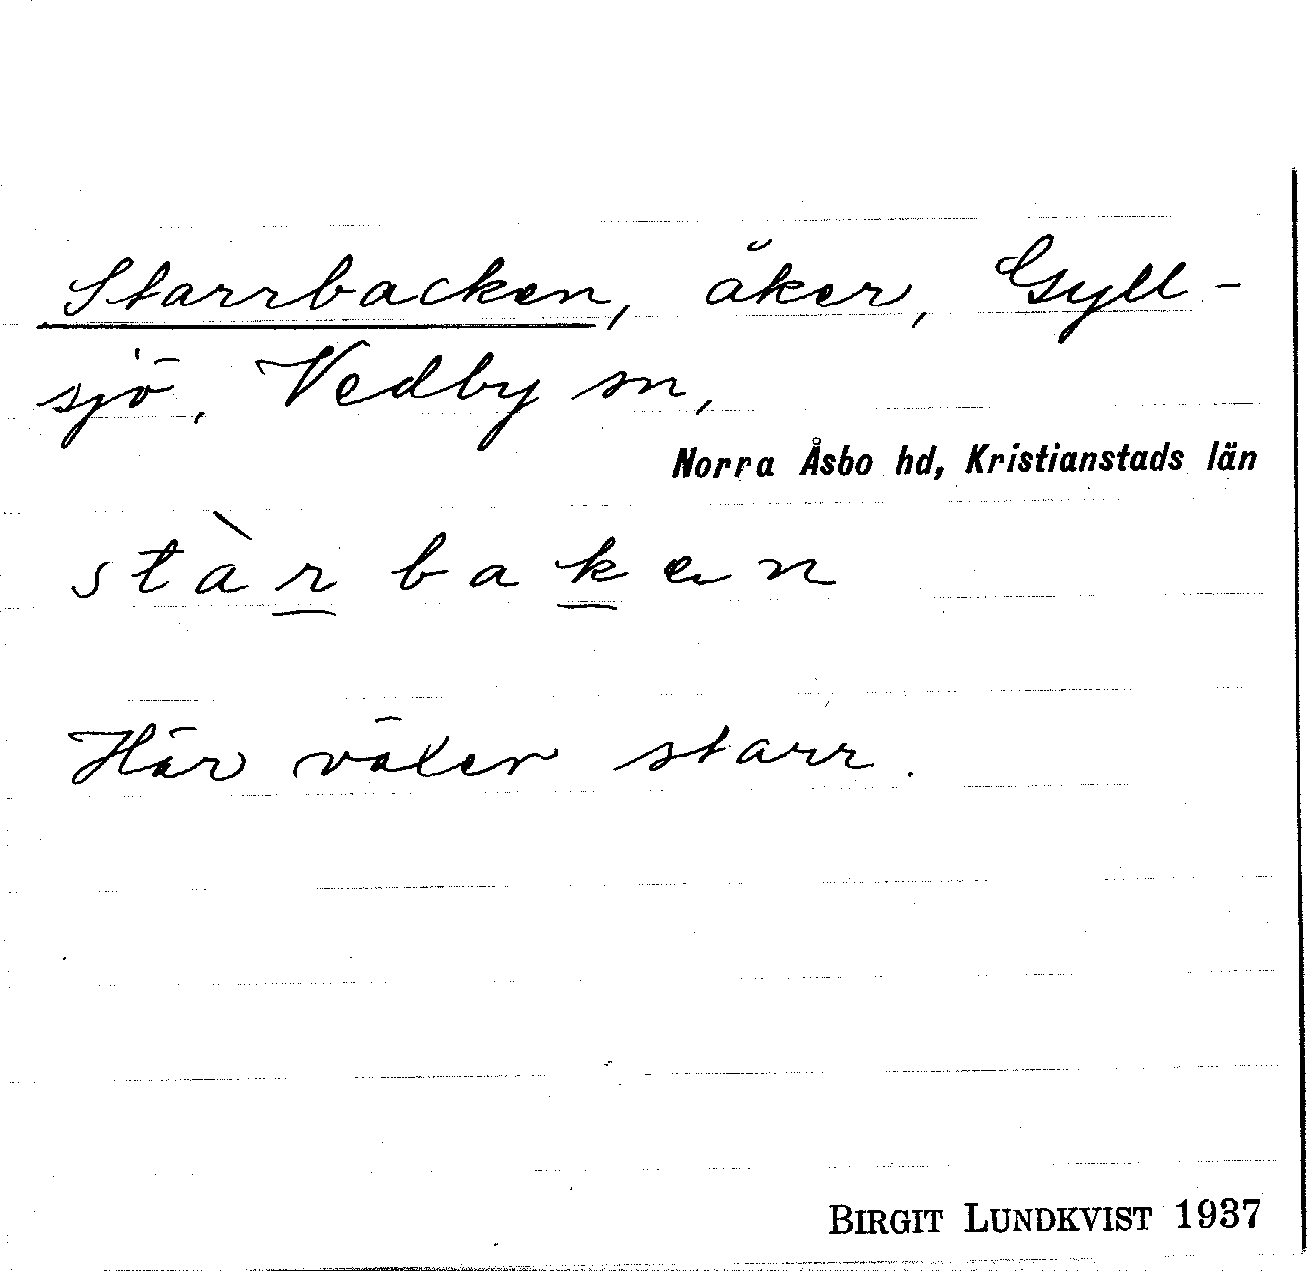 Starrbacken, åker, Gyll-
sjö, Vedby sn,
Norra Åsbo hd, Kristianstads län
stàrbakən
Här växer starr.
BIRGIT LUNDKVIST 1937